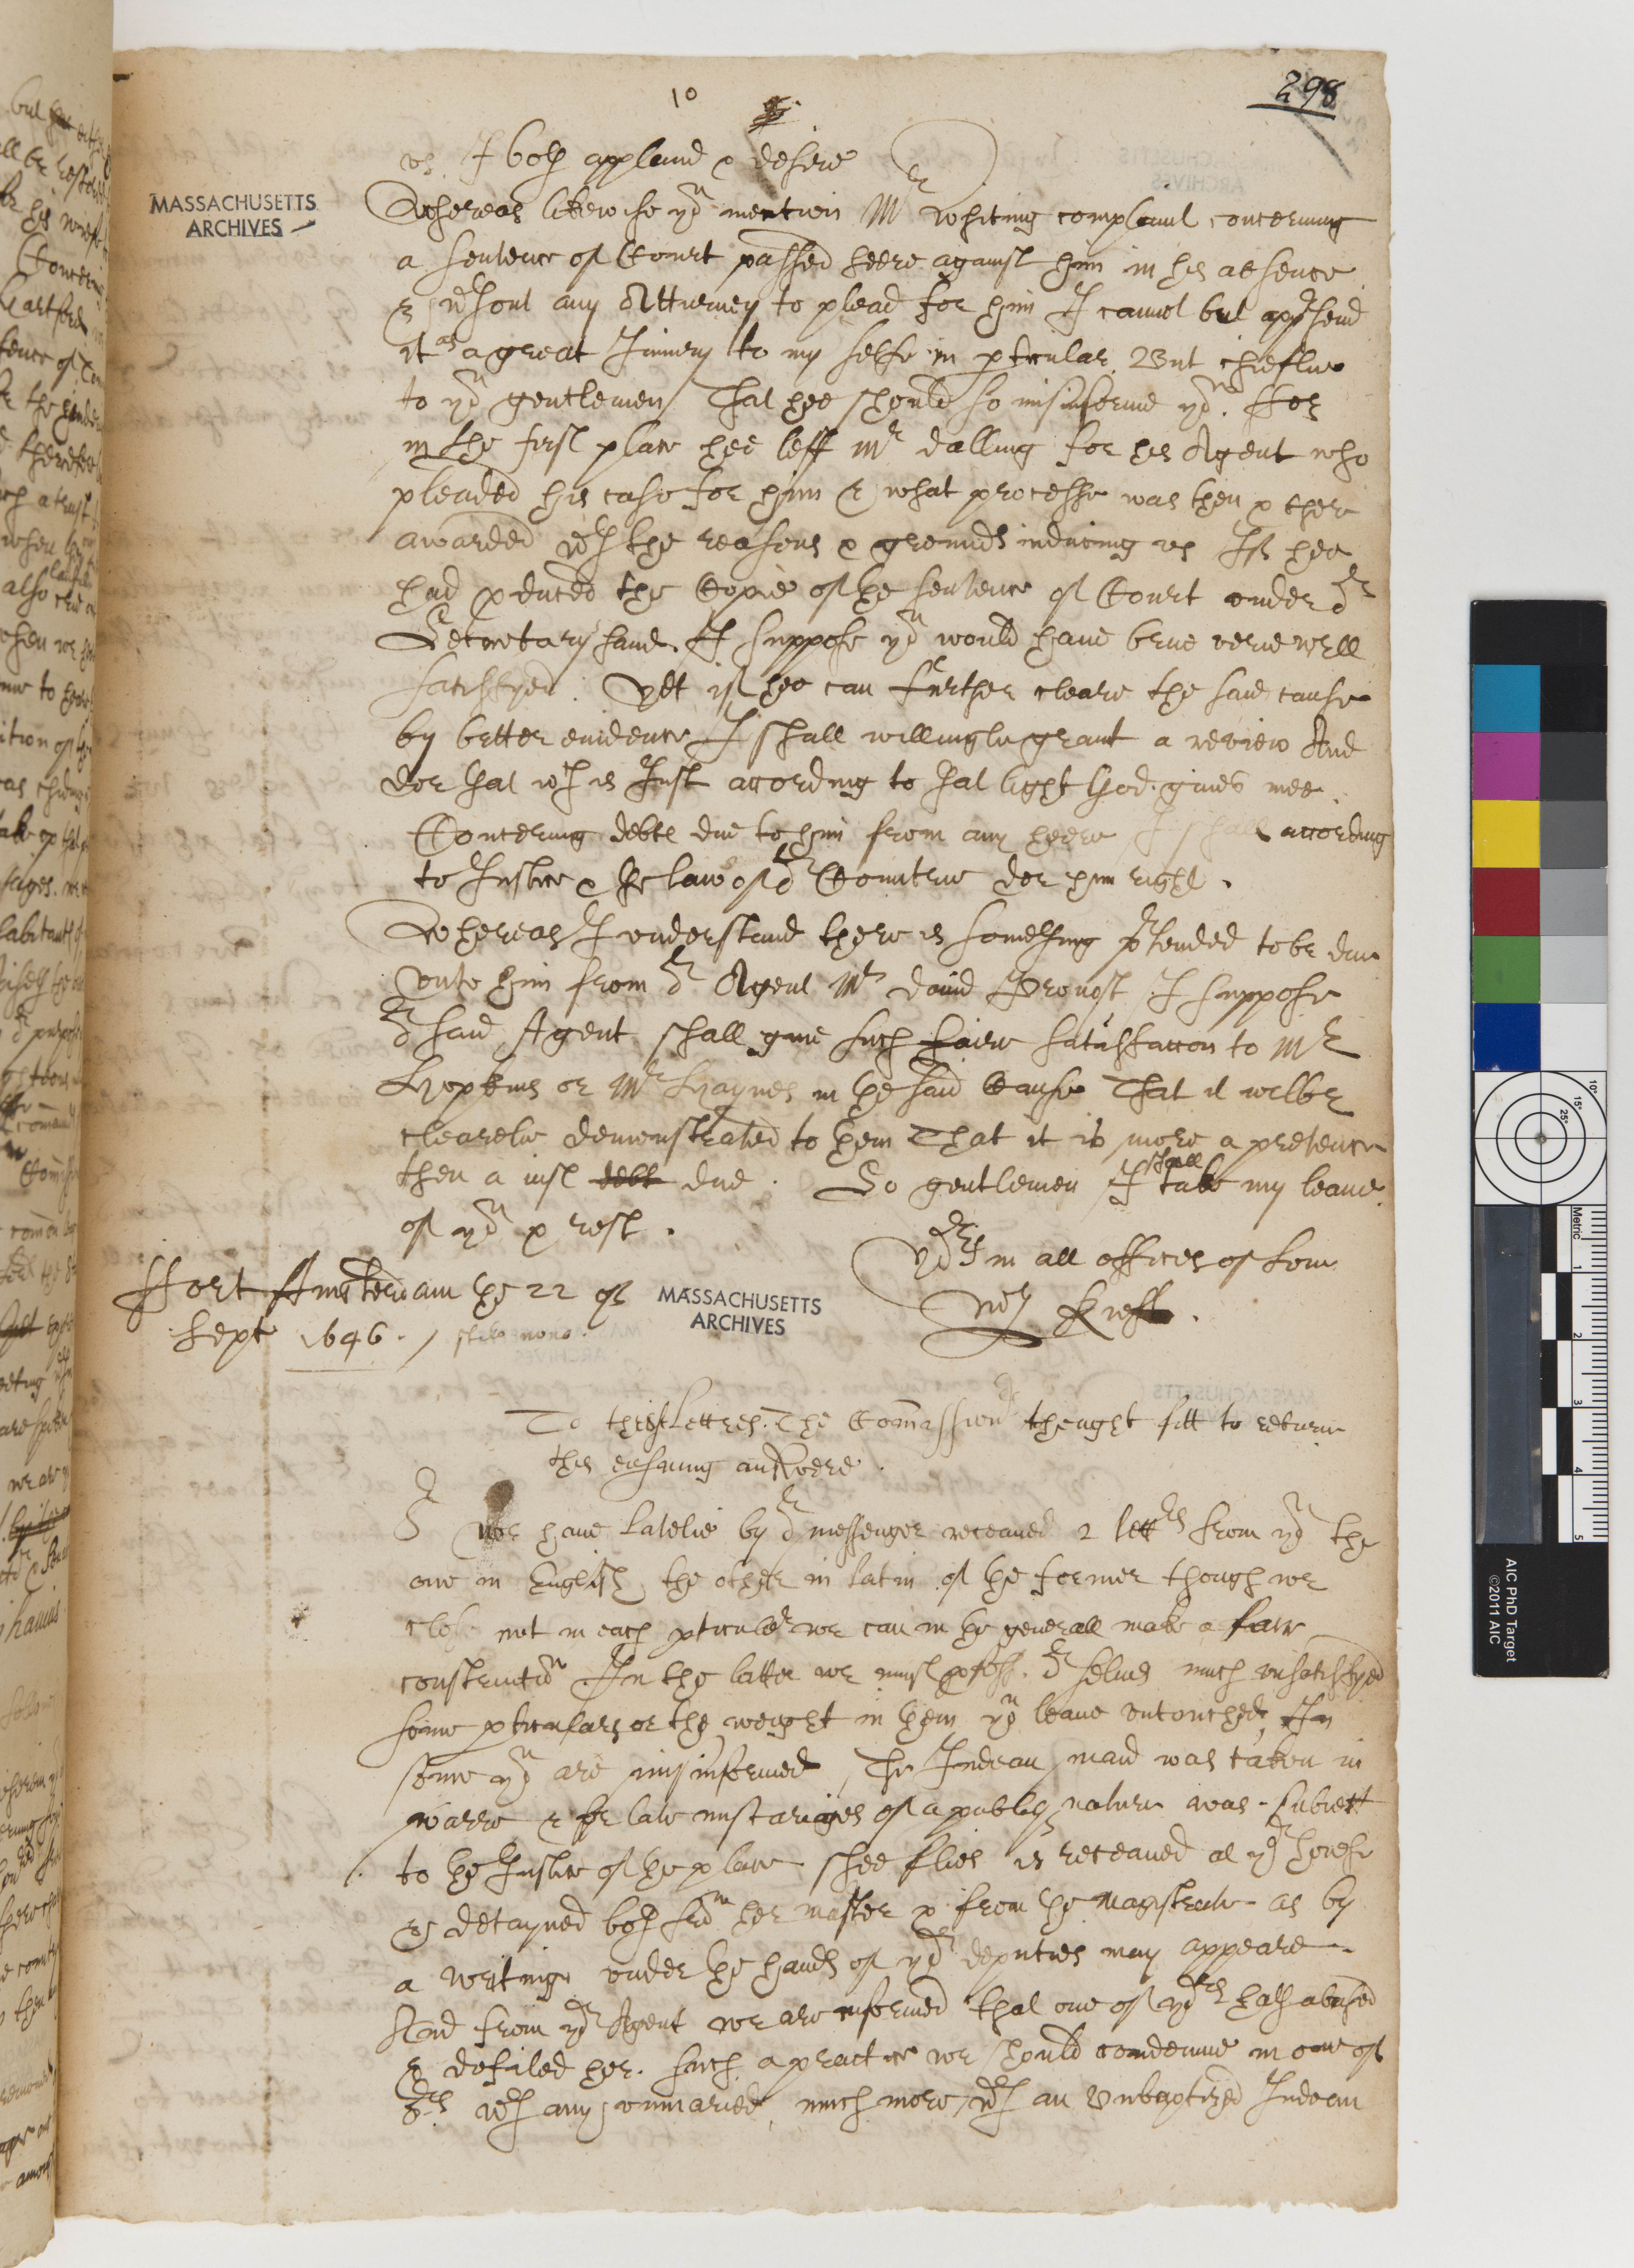 298
10
us I both applaud & desire
MASSACHUSETTS
ARCHIVES
Whereas likewise yow mention Mr Whiting complaint concerning
a sentence of Court passed heere against him in his absence
& wthout any Atturney to plead for him I cannot but apprhend
it as a great Iniury to my selfe in pticular But chieflie
to yow gentlemen That hee should so misinforme yow. For
in the first place hee left mr dalling for his Agent who
pleaded his case for him & what processe was then & there
awarded wth the reasons & grounds inducing us If hee
had pduced the Copie of the sentence of Court under or
Secretary hand. I suppose yow would haue bene verie well
satisfyed. Yet if hee can further cleare the said cause
by better euidence I shall willinglie grant a review And
doe that wch is Iust according to that light God giues mee.
Concerning debts due to him from any heere I shall according
to Iustice & the law of or Countrie doe him right.
Whereas I understand there is something prtended to be due
vnto him from or Agent Mr Dauid Prouost I suppose
or said Agent shall giue such faire satisfaccon to Mr
Hopkins or Mr Haynes in the said Cause That it wilbe
clearelie demonstrated to them That it is more a pretence
then a iust debt due. So gentlemen I shall take my leaue
of yow & rest.
yors in all offices of loue
Wm Kieft.
Fort Amsterdam the 22 of
Sept 1646. stilo nouo.
MASSACHUSETTS
ARCHIVES
To these Lettres. The Comissionrs thought fitt to returne
this ensueing answere.
Sr Wee haue latelie by or messenger receaued 2 lettrs from yow the
one in English, the other in latin of the former though we
close not in each pticuler we can in the generall make a faire
construction In the latter we must pfess or selues much vnsatisfyed
some pticulars or the weight in them yow leaue vntouched, In
some yow are misinformed, The Indean maid was taken in
warre & for late miscariages of a publiq nature was subiect
to the Iustice of the place shee flies is receaued at yor house
& detayned both from her master & from the magistrate as by
a writing vnder the hands of yor deputies may appeare
And from yor Agent we are informed that one of yors hath abused
& defiled her. Such a practice we should condemne in one of
ors wth any vnmaried, much more wth an Vnbaptized Indean